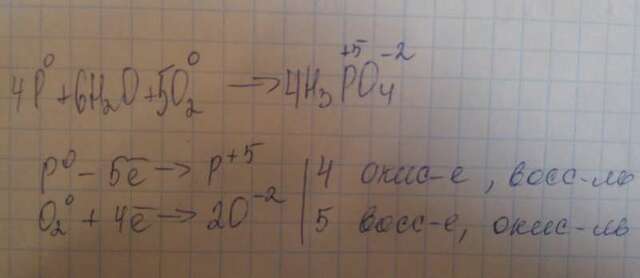 4P⁰ + 6H₂O + 5O₂⁰ → 4H₃P⁺⁵O₄⁻²
P⁰ – 5e̅ → P⁺⁵ | 4 окис-е, восс-ль
O₂⁰ + 4e̅ → 2O⁻² | 5 восс-е, окис-ль